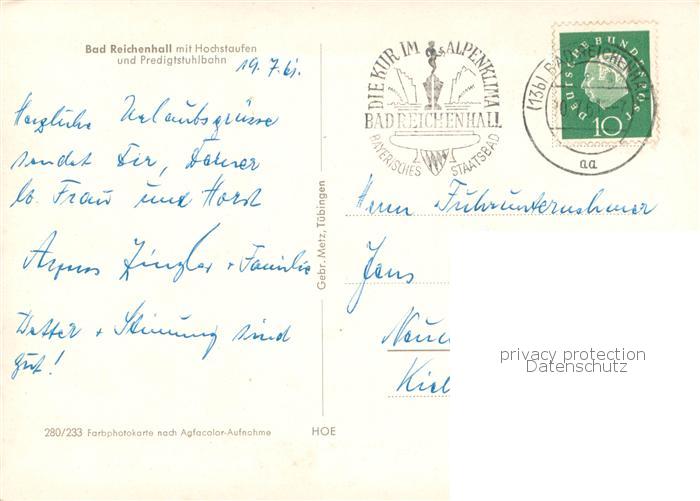 Bad Reichenhall mit Hochstaufen
und Predigtstuhlbahn
19.7.61.
Herzliche Urlaubsgrüsse
sendet Dir, Deiner
lb. Frau und Horst
Zingler + Familie
+ Stimmung sind
gut!
280/233 Farbphotokarte nach Agfacolor-Aufnahme
HOE
Gebr. Metz, Tübingen
DIE KUR IM ALPENKLIMA
BAD REICHENHALL
BAYERISCHES STAATSBAD
(13b) BAD REICHENHALL
aa
DEUTSCHE BUNDESPOST
10
Herrn Fuhrunternehmer
Jens
Kiel
privacy protection
Datenschutz